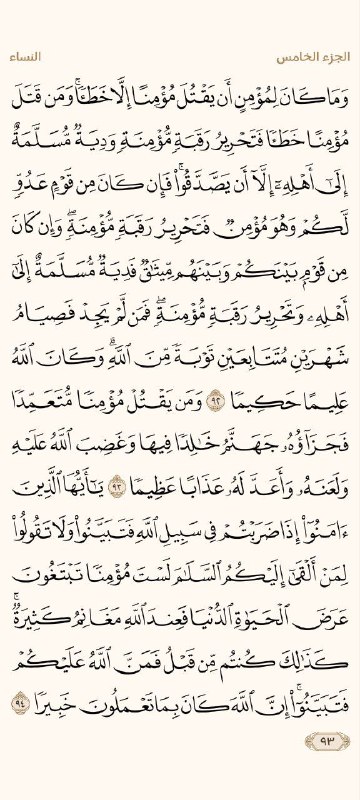 الجزء الخامس
النساء
وَمَا كَانَ لِمُؤْمِنٍ أَن يَقْتُلَ مُؤْمِنًا إِلَّا خَطَـًٔاۚ وَمَن قَتَلَ
مُؤْمِنًا خَطَـًٔا فَتَحْرِيرُ رَقَبَةٍ مُّؤْمِنَةٍ وَدِيَةٌ مُّسَلَّمَةٌ
إِلَىٰٓ أَهْلِهِۦٓ إِلَّآ أَن يَصَّدَّقُوا۟ۚ فَإِن كَانَ مِن قَوْمٍ عَدُوٍّ
لَّكُمْ وَهُوَ مُؤْمِنٌ فَتَحْرِيرُ رَقَبَةٍ مُّؤْمِنَةٍۖ وَإِن كَانَ
مِن قَوْمٍۭ بَيْنَكُمْ وَبَيْنَهُم مِّيثَـٰقٌ فَدِيَةٌ مُّسَلَّمَةٌ إِلَىٰٓ
أَهْلِهِۦ وَتَحْرِيرُ رَقَبَةٍ مُّؤْمِنَةٍۖ فَمَن لَّمْ يَجِدْ فَصِيَامُ
شَهْرَيْنِ مُتَتَابِعَيْنِ تَوْبَةً مِّنَ ٱللَّهِۗ وَكَانَ ٱللَّهُ
عَلِيمًا حَكِيمًا ٩٢ وَمَن يَقْتُلْ مُؤْمِنًا مُّتَعَمِّدًا
فَجَزَآؤُهُۥ جَهَنَّمُ خَـٰلِدًا فِيهَا وَغَضِبَ ٱللَّهُ عَلَيْهِ
وَلَعَنَهُۥ وَأَعَدَّ لَهُۥ عَذَابًا عَظِيمًا ٩٣ يَـٰٓأَيُّهَا ٱلَّذِينَ
ءَامَنُوٓا۟ إِذَا ضَرَبْتُمْ فِى سَبِيلِ ٱللَّهِ فَتَبَيَّنُوا۟ وَلَا تَقُولُوا۟
لِمَنْ أَلْقَىٰٓ إِلَيْكُمُ ٱلسَّلَـٰمَ لَسْتَ مُؤْمِنًا تَبْتَغُونَ
عَرَضَ ٱلْحَيَوٰةِ ٱلدُّنْيَا فَعِندَ ٱللَّهِ مَغَانِمُ كَثِيرَةٌۚ
كَذَٰلِكَ كُنتُم مِّن قَبْلُ فَمَنَّ ٱللَّهُ عَلَيْكُمْ
فَتَبَيَّنُوٓا۟ۚ إِنَّ ٱللَّهَ كَانَ بِمَا تَعْمَلُونَ خَبِيرًا ٩٤
٩٣